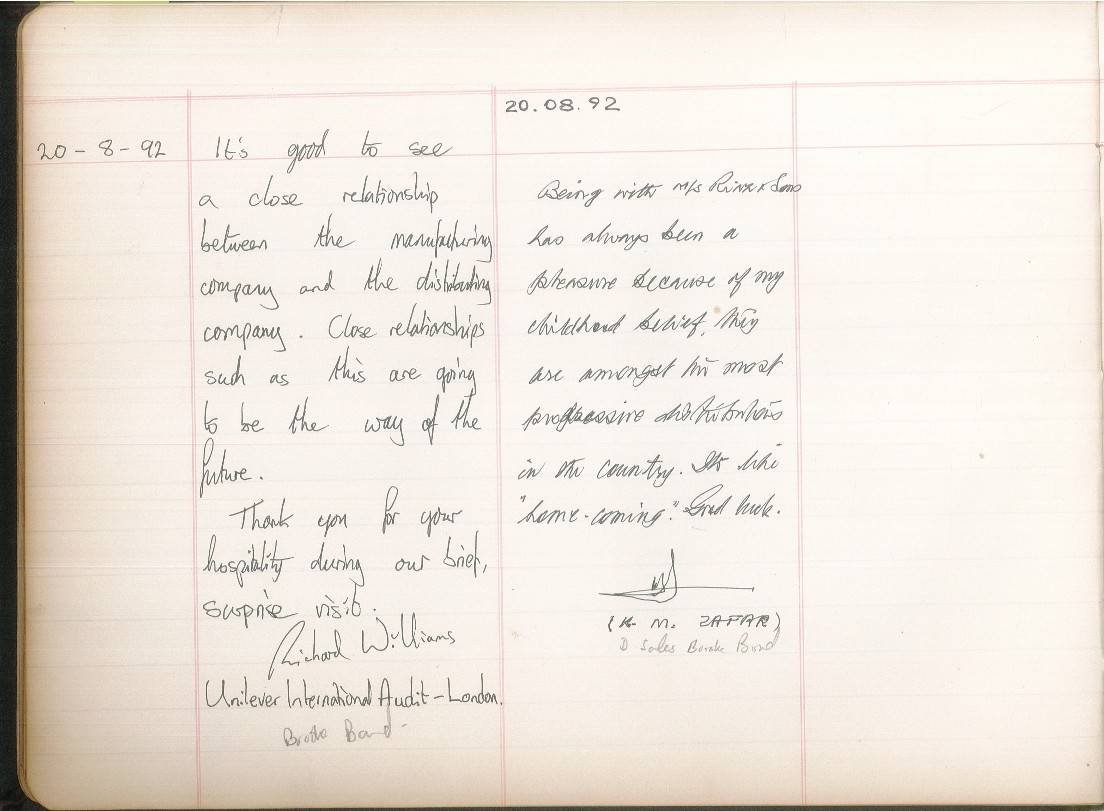 20-8-92
It's good to see
a close relationship
between the manufacturing
company and the distributing
company. Close relationships
such as this are going
to be the way of the
future.
Thank you for your
hospitality during our brief,
surprise visit.
Richard Williams
Unilever International Audit - London.
Brooke Bond
20.08.92
Being with M/s & Sons
has always been a
pleasure because of my
childhood belief, they
are amongst the most
progressive distributors
in the country. Its like
"home-coming." Good luck.
(K. M. ZAFAR)
D Sales Brooke Bond